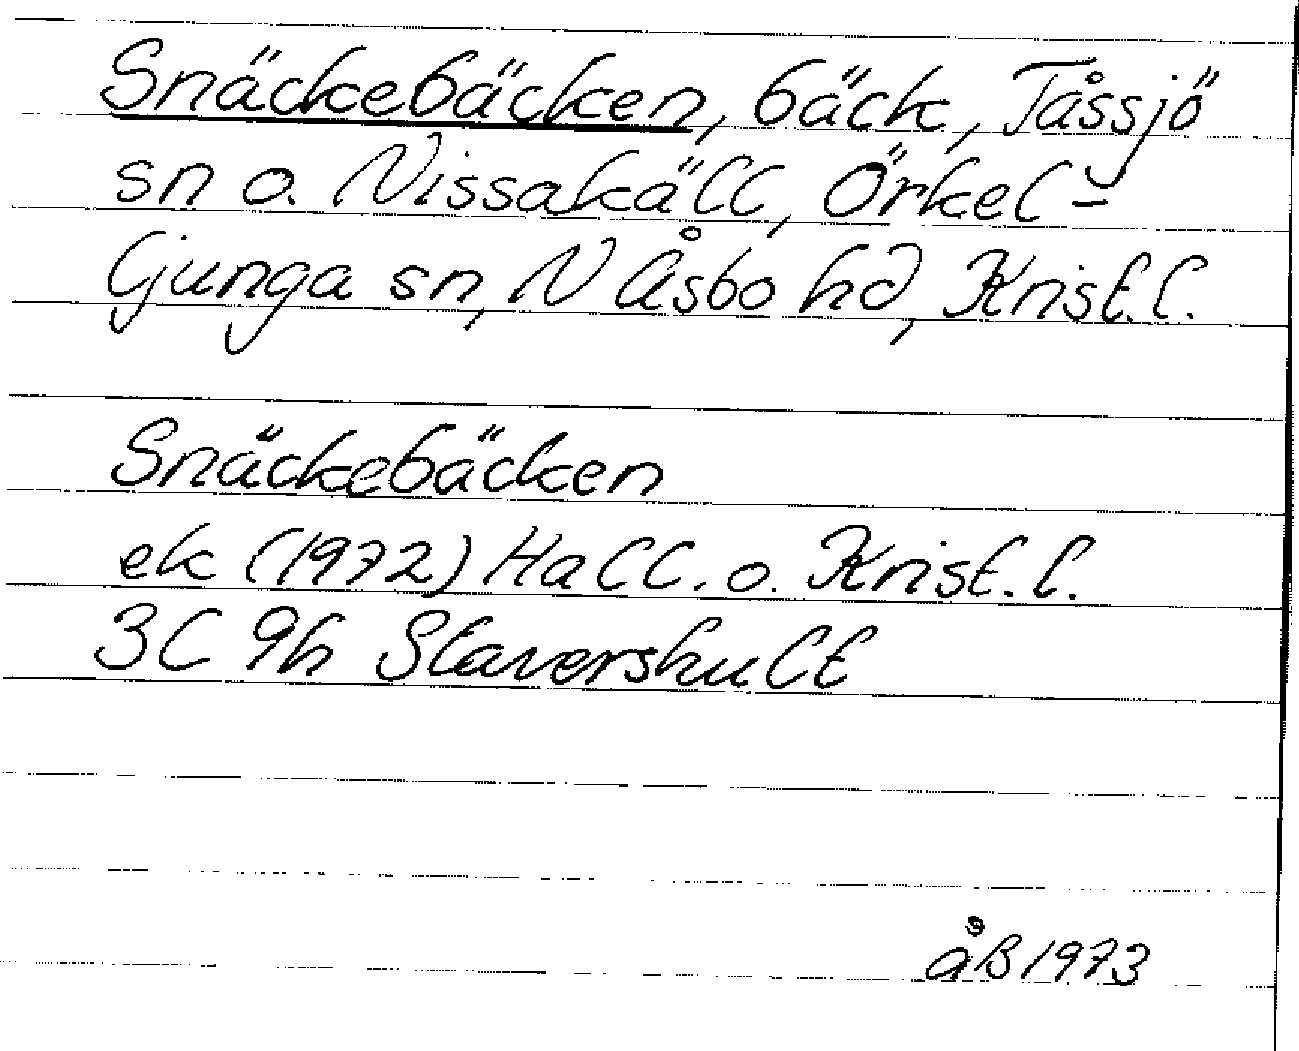 Snäckebäcken, bäck, Tåssjö
sn o. Nissakäll, Örkel-
ljunga sn, N Åsbo hd, Krist.l.
Snäckebäcken
ek (1972) Hall. o. Krist.l.
3C 9h Stavershult
åB 1973